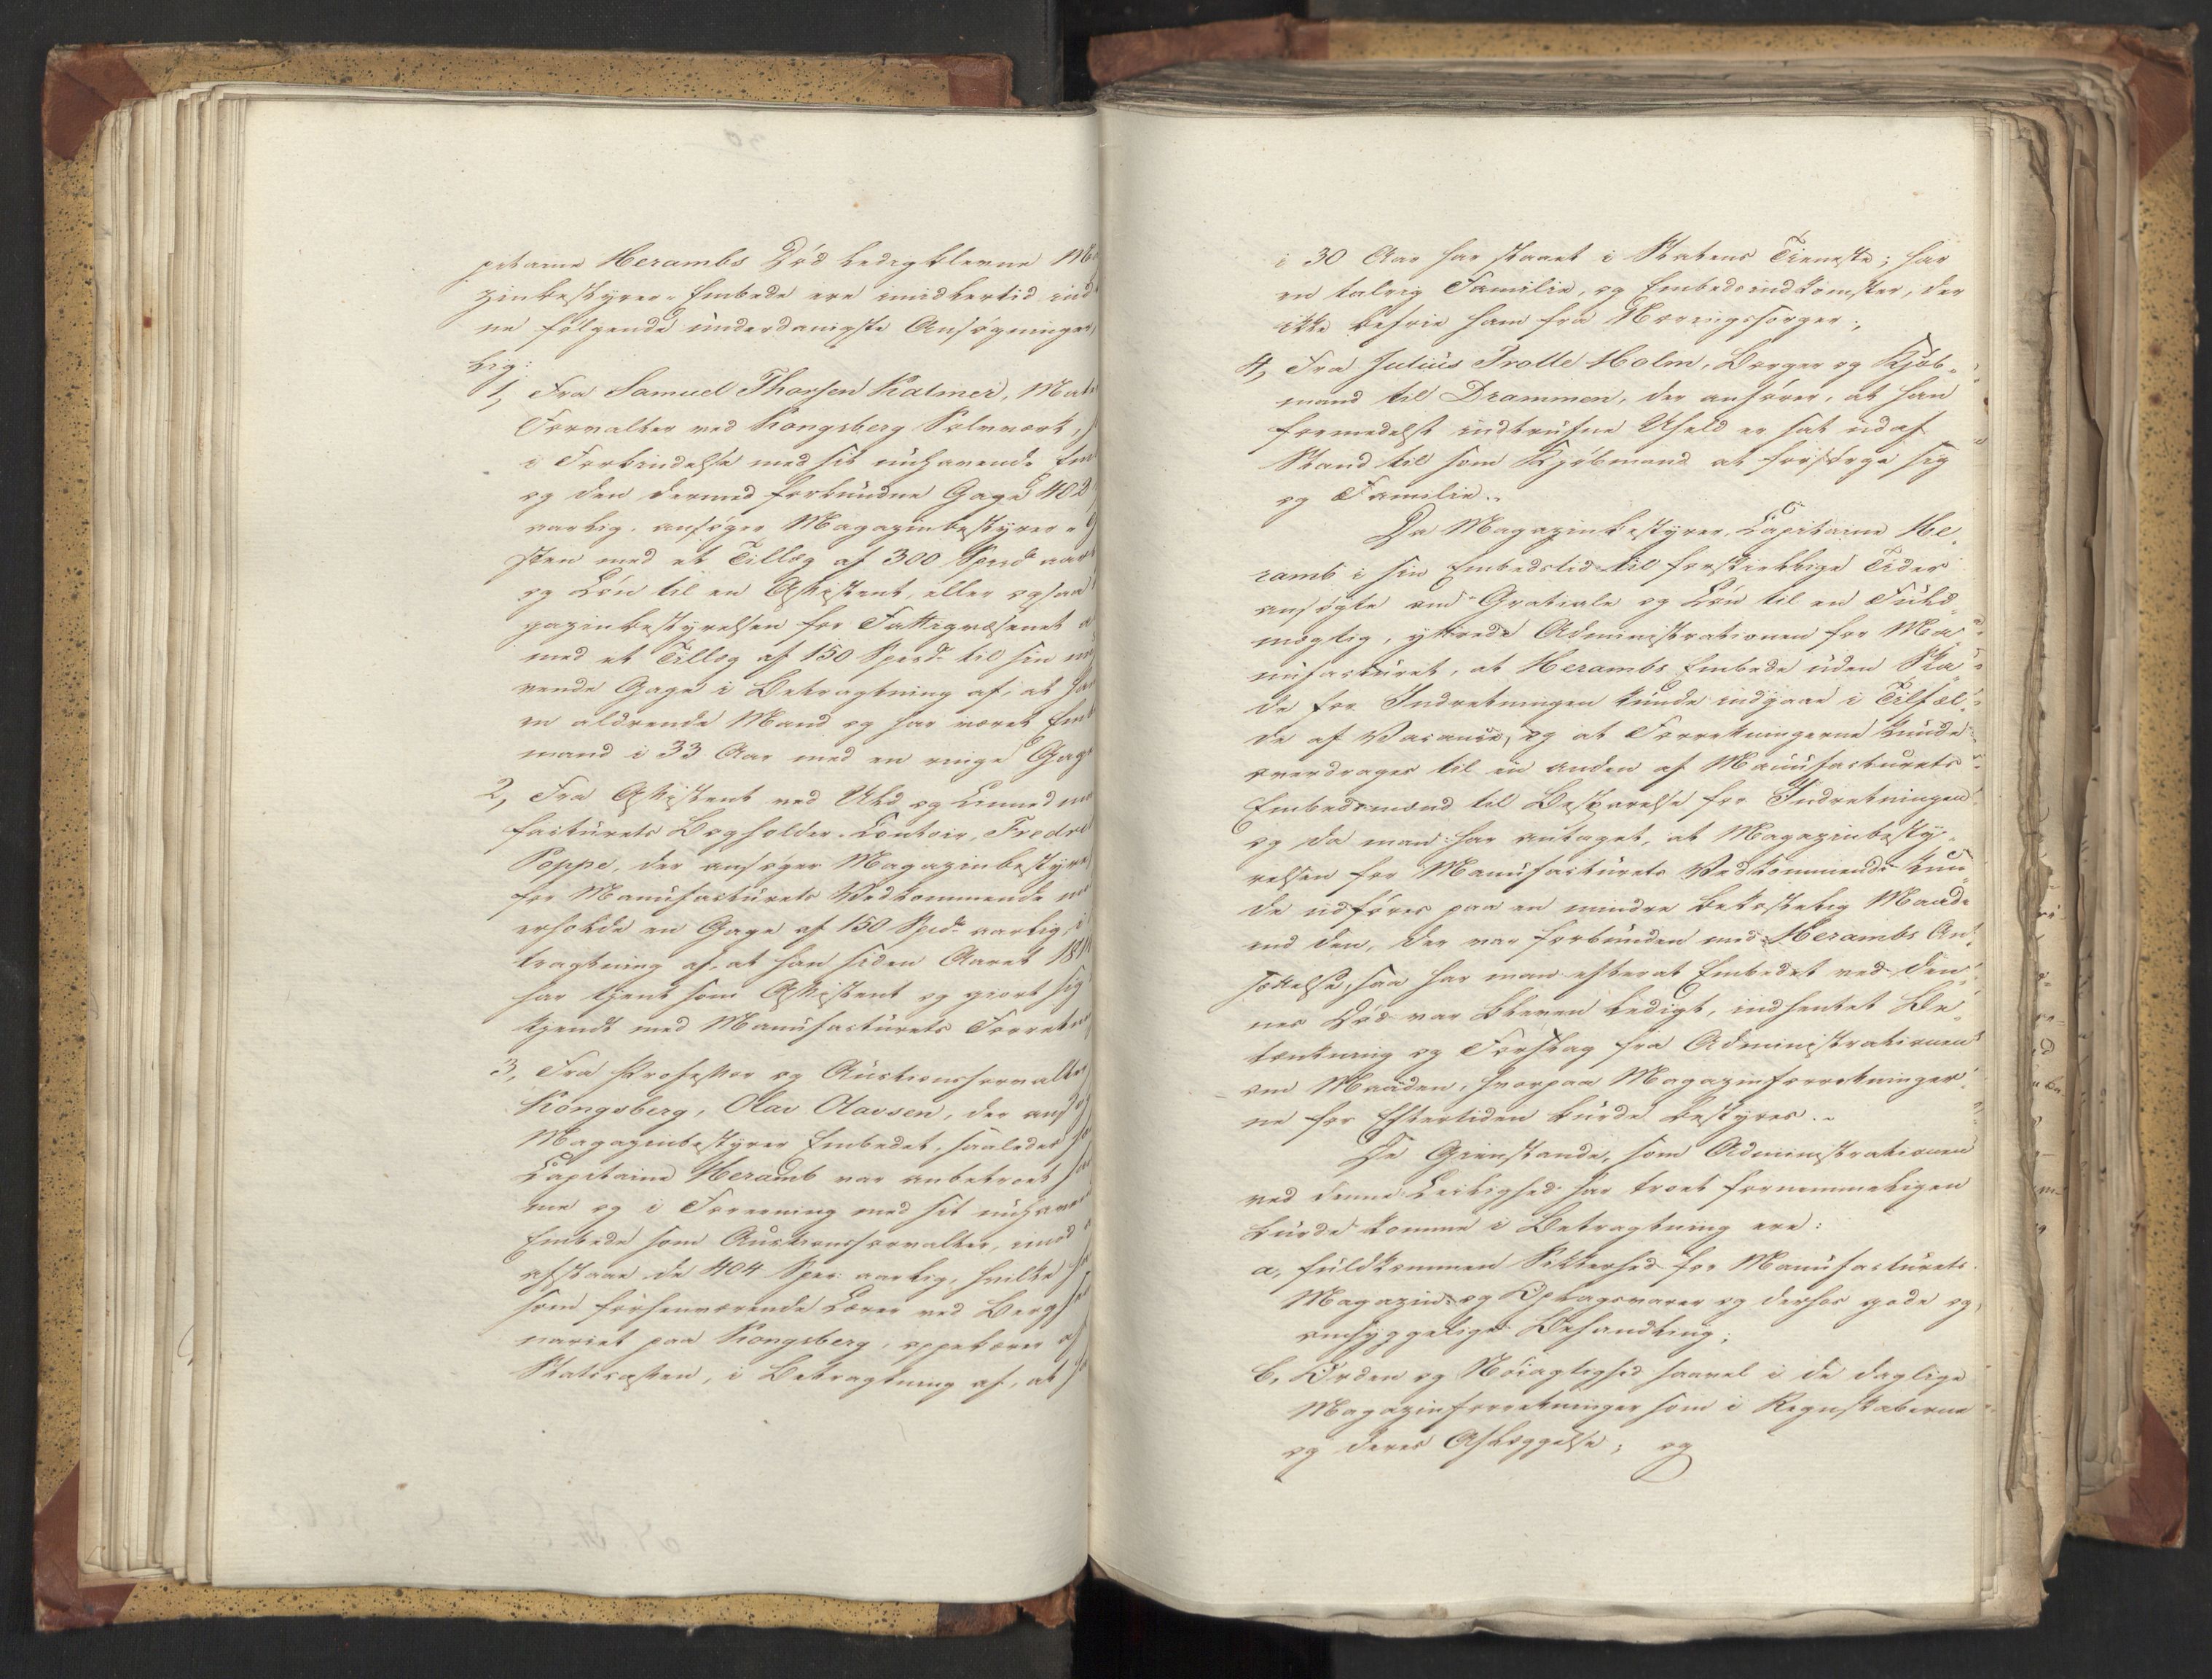 pitaine Herambs Død ledigblevne Ma
zinbestyrer-Embede ere imidlertid ind
ne følgende underdanigste Ansøgninger,
lig:
1, Fra Samuel Thorsen Kalmei, Mate
Forvalter ved Kongsberg Sølvværk,
i Forbindelse med sit nuhavende Em
og den dermed forbundne Gage 402
aarlig, ansøger Magazinbestyrer-
sten med et Tillæg af 300 Spd aar
og Løn til en Assistent, eller ogsaa
gazinbestyrelsen for Fattigvæsenet
med et Tillæg af 150 Spesd. til sin
vende Gage i Betragtning af, at han
en aldrende Mand og har været Emb
mand i 33 Aar med en ringe Gage
2, Fra Assistent ved Uld og Linned
facturets Bogholder-Contoir, Fredri
Poppe, der ansøger Magazinbestyre
for Manufacturets Vedkommende
erholde en Gage af 150 Spd. aarlig, i
tragtning af, at han siden Aaret 181
har tjent som Assistent og giort sig
kjendt med Manufacturets Forretn
3, Fra Professor og Auctionsforvalter
Kongsberg, Olav Olavsen, der ansø
Magazinbestyrer Embedet, saaledes
Capitaine Heramb var anbetroet
me og i Forening med sit nuhave
Embede som Auctionsforvalter, mod
afstaae de 404 Spd. aarlig, hvilke
som forhenværende Lærer ved Berg
nariet paa Kongsberg, oppebærer af
Statscassen, i Betragtning af, at
i 30 Aar har staaet i Statens Tieneste; har
en talrig Familie, og Embedsindkomster, der
ikke befrie ham fra Næringssorger.,
4, Fra Julius Trolle Holm, Borger og Kjøb-
mand til Drammen, der anfører, at han
formedelst indtrufne Uheld er sat ud af
Stand til som Kjøbmand at forsørge sig
og Familie.-
Da Magazinbestyrer, Capitaine He-
ramb i sin Embedstid til forskiellige Tider
ansøgte om Gratiale og Løn til en Fuld-
mægtig, yttrede Administrationen for Ma-
nufacturet, at Herambs Embede uden Ska-
de for Indretningen kunde indgaae i Tilfæl-
de af Vacance, og at Forretningerne kunde
overdrages til en anden af Manufacturets
Embedsmænd til Besparelse for Indretningen
og da man har antaget, at Magazinbesty-
relsen for Manufacturets Vedkommende kun-
de udføres paa en mindre bekostelig Maade
end den, der var forbunden med Herambs An-
sættelse, saa har man efterat Embedet ved den-
nes Død var bleven ledigt, indhentet Be-
tænkning og Forslag fra Administrationen
om Maaden, hvorpaa Magazinforretninger-
ne for Eftertiden burde bestyres.-
De Gienstande, som Administrationen
ved denne Leilighed har troet fornemmeligen
burde komme i Betragtning ere:
a, fuldkommen Sikkerhed for Manufacturets
Magazin- og Oplagsvarer og derhos gode og
omhyggelige Behandling;
b, Orden og Nøiagtighed saavel i de daglige
Magazinforretninger som i Regnskaberne
og deres Aflæggelse; og